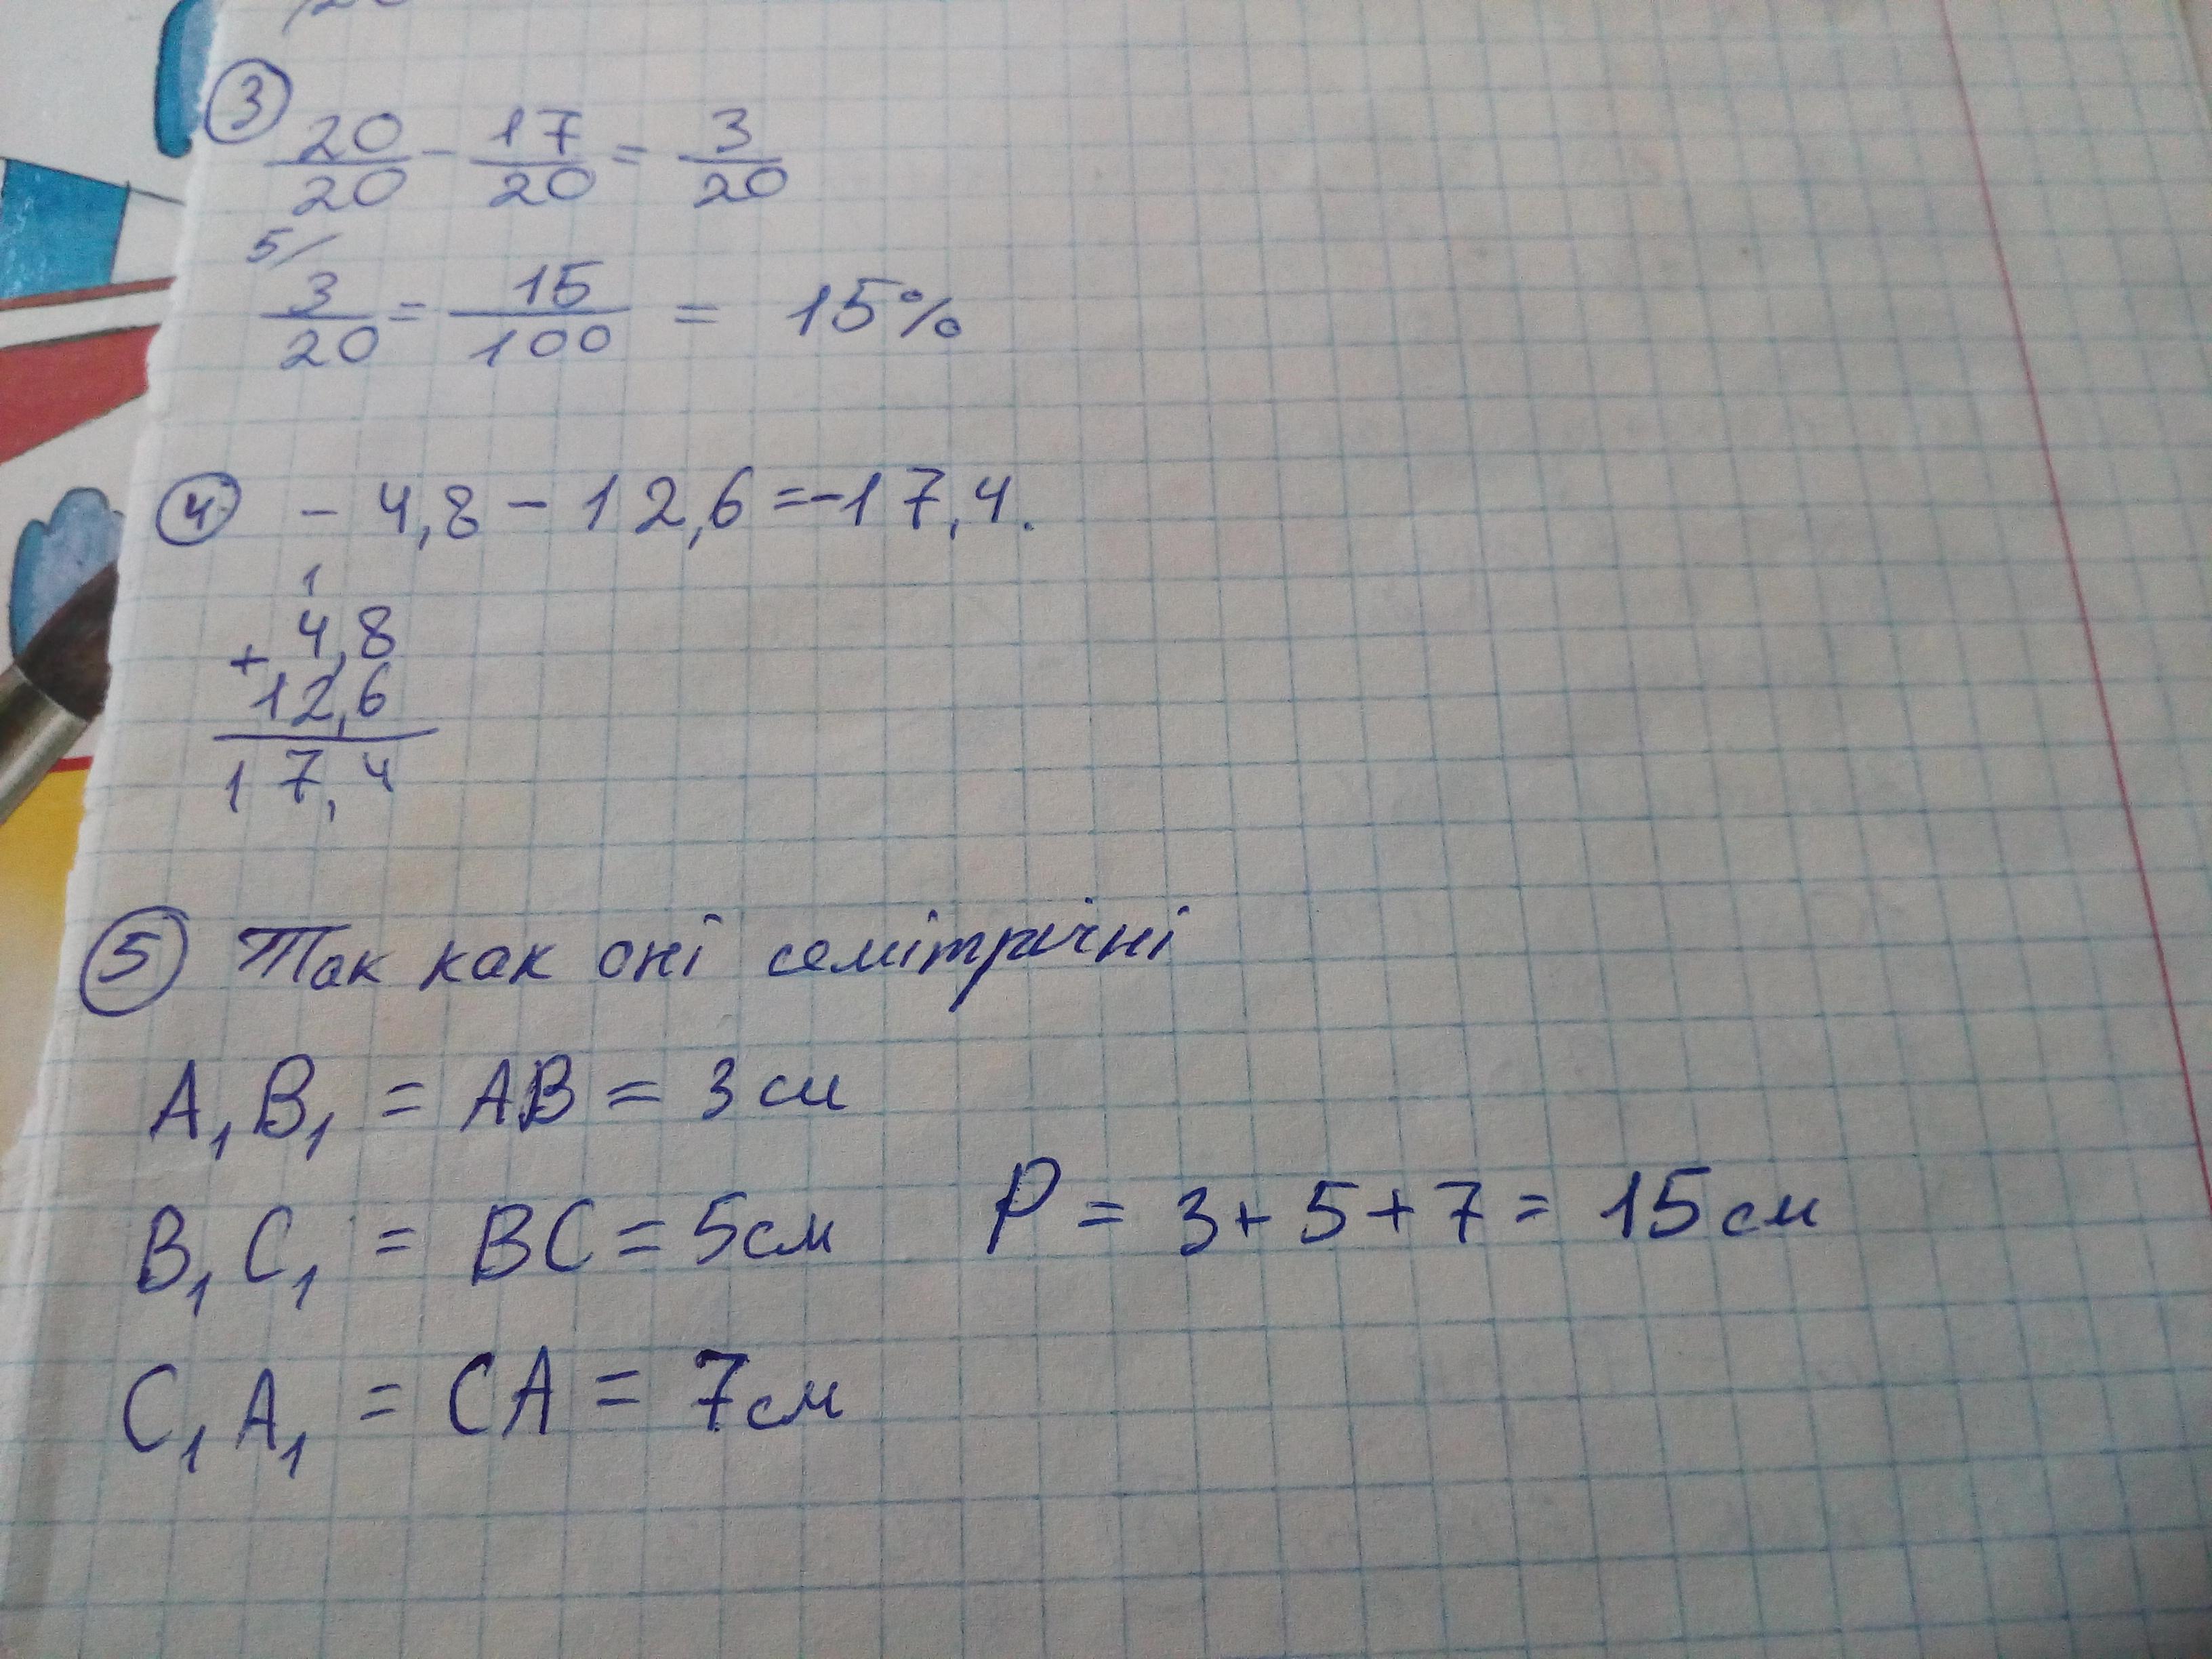 3
20/20 - 17/20 = 3/20
5/
3/20 = 15/100 = 15%
4 - 4,8 - 12,6 = -17,4.
1
4,8
+
12,6
17,4
5 Так как оні семітрічні
A₁B₁ = AB = 3 см
B₁C₁ = BC = 5см P = 3 + 5 + 7 = 15см
C₁A₁ = CA = 7см